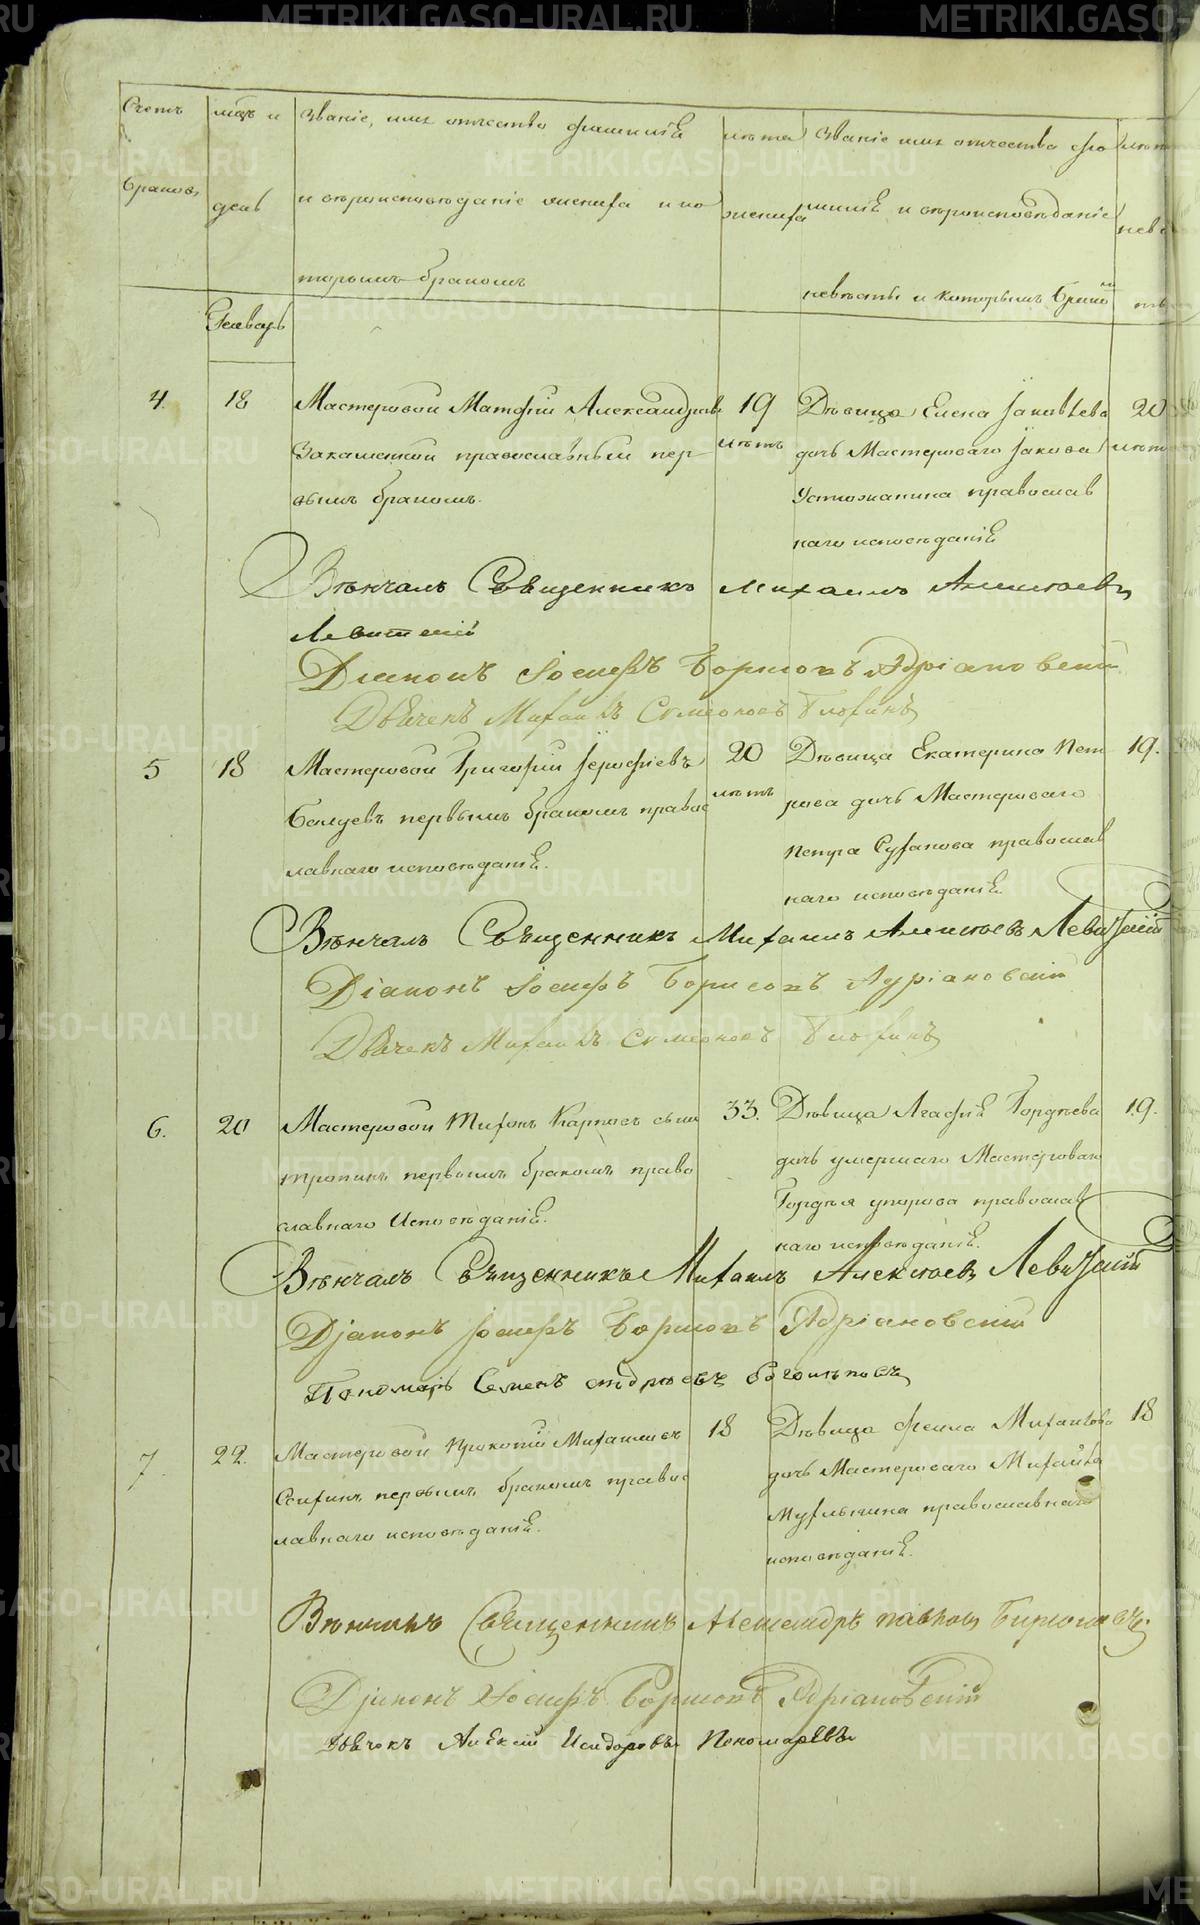 METRIKI.GASO-URAL.RU
Счетъ
браковъ
мцъ и
день
Званіе, имя отчество фамилія
и вѣроисповѣданіе жениха и ко
торымъ бракомъ
лѣта
жениха
Званіе имя отчество фа
милія и вѣроисповѣданіе
невѣсты и которымъ брако
Генварь
4.
18
Мастеровой Матфій Александровъ
Закаметной православный пер
вымъ бракомъ.
19
лѣтъ
Дѣвица Елена Іаковлева
дочь Мастероваго Іакова
Устюжанина православ
наго исповѣданія
20
лѣтъ
Вѣнчалъ Священникъ Михаилъ Алексіевъ
Левитскій
Діаконъ Іосифъ Борисовъ Адріановскій
Дьячекъ Михаилъ Симеоновъ
5
18
Мастеровой Григорій Іерофіевъ
первымъ бракомъ правос
лавнаго исповѣданія.
20
лѣтъ
Дѣвица Екатерина Пет
рова дочь Мастероваго
Петра Суханова православ
наго исповѣданія
19.
Вѣнчалъ Священникъ Михаилъ Алексіевъ Левитскій
Діаконъ Іосифъ Борисовъ Адріановскій
Дьячекъ Михаилъ Симеоновъ
6.
20
Мастеровой Тихонъ Карповъ сынъ
первымъ бракомъ право
славнаго Исповѣданія.
33.
Дѣвица Агафія Гордѣева
дочь умершаго Мастероваго
Гордѣя упорова православ
наго исповѣданія.
19.
Вѣнчалъ Священникъ Михаилъ Алексіевъ Левитскій
Діаконъ Іосифъ Борисовъ Адріановскій
Пономарь Семенъ
7.
22.
Мастеровой Прокопій Михаиловъ
первымъ бракомъ правос
лавнаго исповѣданія.
18
Дѣвица Фекла Михайлова
дочь Мастероваго Михайла
православнаго
исповѣданія.
18
Вѣнчалъ Священникъ Александръ Павловъ
Діаконъ Іосифъ Борисовъ Адріановскій
Дьячекъ Алексій Исидоровъ Пономаревъ